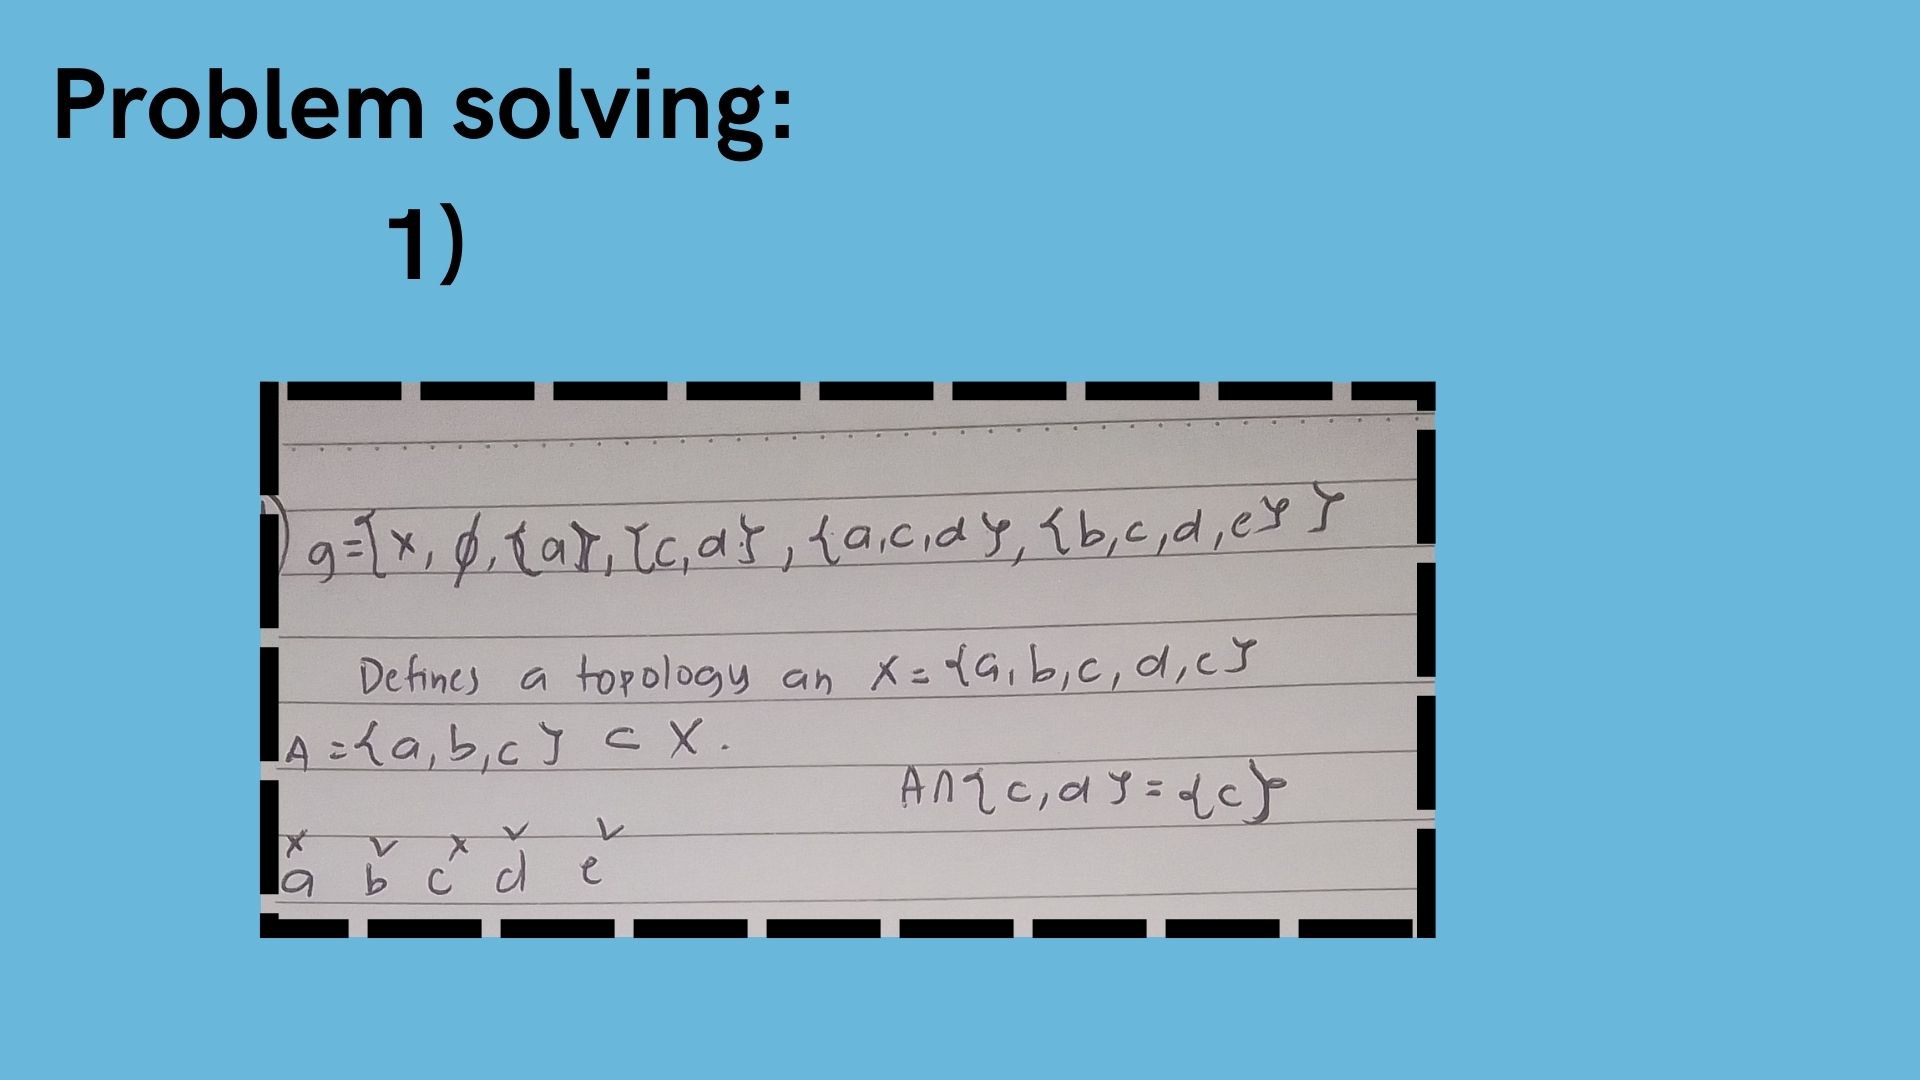 Problem solving:
1)
) g={x, ϕ, {a}, {c,d}, {a,c,d}, {b,c,d,e} }
Defines a topology an X={a,b,c,d,e}
A={a,b,c} ⊂ X.
A∩{c,d}={c}
x v x v v
a b c d e